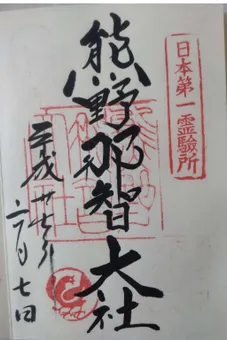 日本第一霊験所
熊野那智大社
平成廿七年
七日